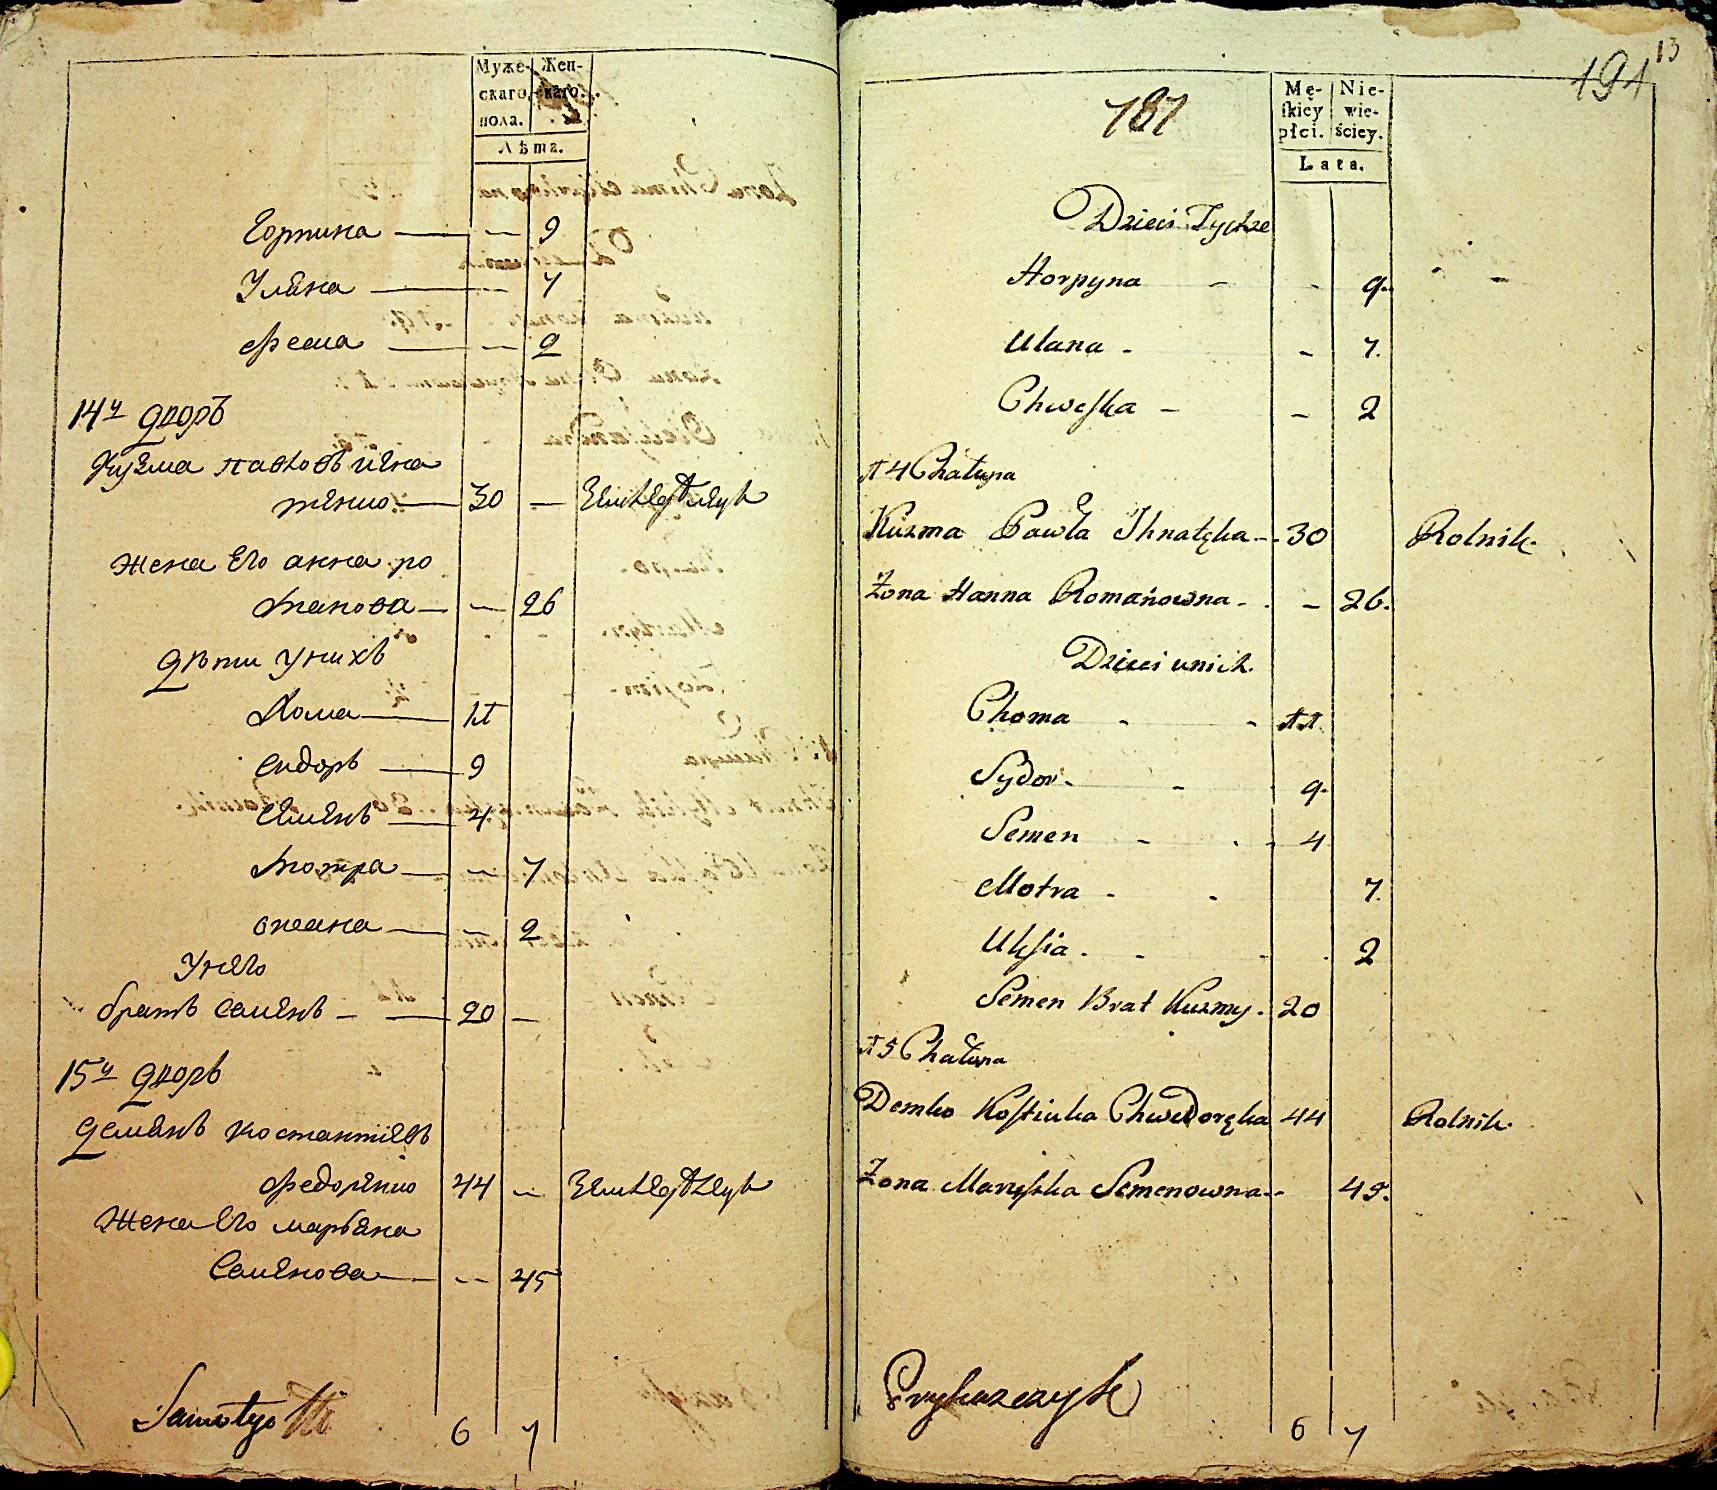 Муже- Жен-
скаго, скаго.
пола.
Лѣта.
Горпина — — 9
Уляна — — 7
Феска — — 2
14й дворъ
Кузма павловъ игна
тенко — 30 — Земледелецъ
жена его анна ро
манова — — 26
дѣти унихъ
Хома — 11
Сидоръ — 9
Семенъ — 4
Мотра — — 7
оксана — — 2
Унего
братъ Семенъ — — 20 —
15й дворъ
Демянъ костантиевъ
Федоренко 44 — Земледелецъ
жена Его марьяна
Семенова — — 45
6 7
13
191
787
Mę- Nie-
skiey wie-
płci. ściey.
Lata.
Dzieci Tychże
Horpyna - - 9.
Ulana - - 7.
Chweska - - 2
14 Chałupa
Kuzma Pawła Ihnatęka - 30 Rolnik.
Żona Hanna Romanowna - - 26.
Dzieci u nich.
Choma - - 11.
Sydor - - 9.
Semen - - 4
Motra - - 7.
Uksia - - - 2
Semen Brat Kuzmy. 20
15 Chałupa
Demko Kostiuka Chwedoręka 44 Rolnik.
Żona Maryska Semenowna - 45.
Prykazczyk
6 7